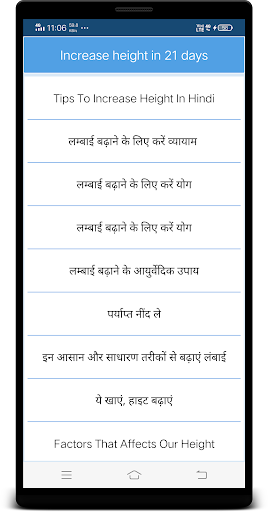 11:06
Increase height in 21 days
Tips To Increase Height In Hindi
लम्बाई बढ़ाने के लिए करें व्यायाम
लम्बाई बढ़ाने के लिए करें योग
लम्बाई बढ़ाने के लिए करें योग
लम्बाई बढ़ाने के आयुर्वेदिक उपाय
पर्याप्त नींद ले
इन आसान और साधारण तरीकों से बढ़ाएं लंबाई
ये खाएं, हाइट बढ़ाएं
Factors That Affects Our Height